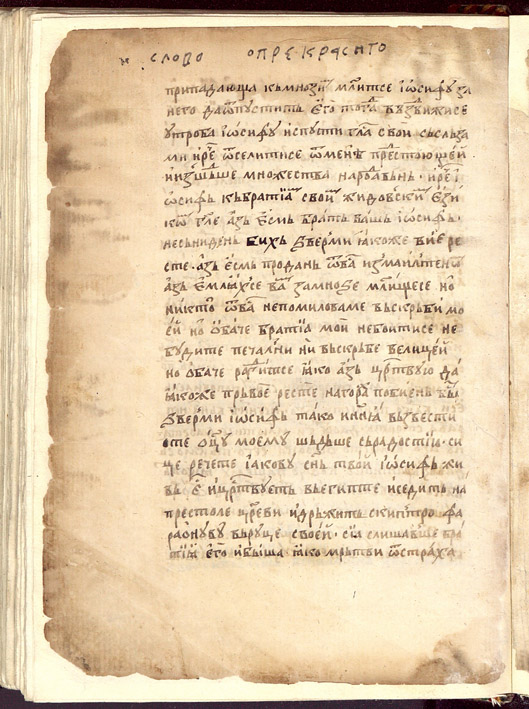 и слово опрекраснто
припадающа къмнозѣи млитсе іѡсифу за
него даѿпустить его тогⷣа възⷣвижисе
утроба іѡсифу испусти глⷭа свои сьслъза
ми ирⷱе ѿселитисе ѿменѣ прⷣестоющеи
множества нарⷪдавьнь· ирⷱе і
ѡсифь къбратіꙗⷨ своиⷨ жидовскиⷨ ези
кѡⷨ гле азъ есмь брать вашь іѡсифь·
несьнидень бихь ѕверми ꙗкоже ви ре
сте· азь есмь продань ѿваⷭ измаилтеноⷨ
азь емлꙗхсе ваⷨ замноѕе млищесе но
никтоⷤ ѿваⷭ непомиловаме вьскрьби мо
еи но ѡбаче братіꙗ моꙗ небоитисе не
будите печални ни вьскрьбе велицеи
но обаче раⷣуитсе ꙗко азь црⷭтвую да
ꙗкоже прьвое ресте нагораⷯ побиень биⷭ
ѕверми іѡсифь тако ининꙗ възвести
оте оцу моему шьдьше сьрадостію· си
це речете іакову снь твои іѡсифь жи
вь еⷭ ицрⷭтвуеть вьегипте иседить на
престоле црⷭеви идрьжить скипптро фа
раонуву вьруце своеи· сіа слишавьше бра
тіꙗ его ибыша ꙗко мрьтви ѿстраха